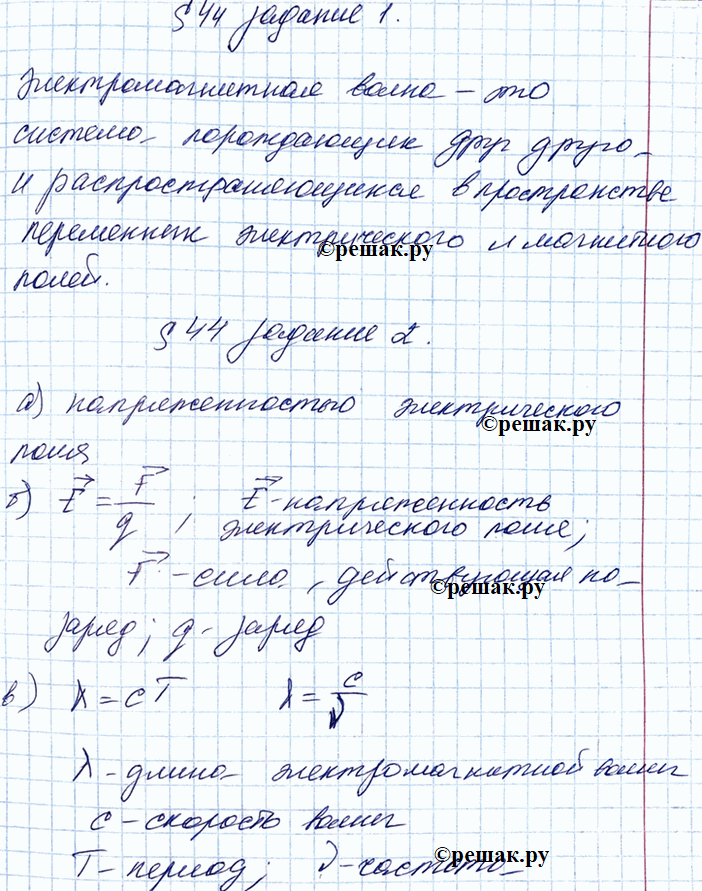 § 44 задание 1.
Электромагнитная волна – это
система порождающих друг друга
и распространяющихся в пространстве
переменных электрического и магнитного
©решак.ру
полей.
§ 44 задание 2.
а) напряженностью электрического
©решак.ру
поля
б) E = F/q ; E - напряженность
электрического поля;
F - сила, действующая на
©решак.ру
заряд; q - заряд
в) λ = cT λ = c/ν
λ - длина электромагнитной волны
c - скорость волны
T - период; ν - частота
©решак.ру